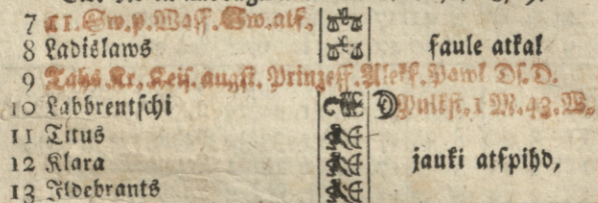 7 11. Sw. p. Waſſ. Sw. atſ.
8 Ladislaws faule atkal
9 Tahs Kr. Keiſ. augſt. Prinzeſſ. Alekſ. Pawl Dſ. D.
10 Labbrentſchi Pulkſt. 1 M. 43. W.
11 Titus
12 Klara jauki atſpihd,
13 Ildebrants